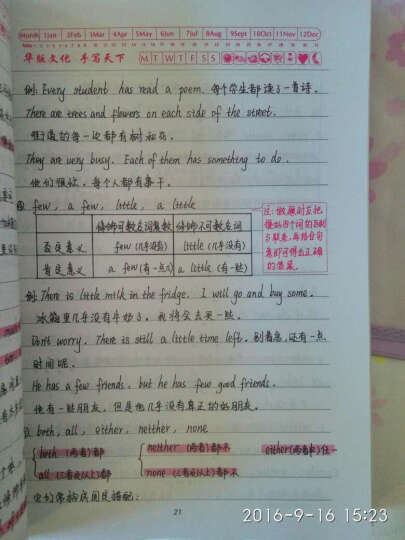 Month 1Jan 2Feb 3Mar 4Apr 5May 6Jun 7Jul 8Aug 9Sept 10Oct 11Nov 12Dec
华版文化 手写天下 M T W T F S S
例: Every student has read a poem. 每个学生都读了一首诗。
There are trees and flowers on each side of the street.
街道的每一边都有树和花。
They are very busy. Each of them has something to do.
他们很忙。每个人都有事干。
② few, a few, little, a little
修饰可数名词复数 修饰不可数名词
否定意义 few (几乎没有) little (几乎没有)
肯定意义 a few (有一点儿) a little (有一些)
注: 做题时要把
握好四个词的区别
与联系, 再结合句
意即可得出正确
的答案。
例: There is little milk in the fridge. I will go and buy some.
冰箱里几乎没有牛奶了。我将会去买一些。
Don't worry. There is still a little time left. 别着急, 还有一点
时间呢。
He has a few friends, but he has few good friends.
他有一些朋友, 但是他几乎没有真正的好朋友。
③ both, all, either, neither, none
both (两者)都 neither (两者)都不 either (两者中)任一
all (三者或以上)都 none (三者或以上)都不
它们常构成固定搭配:
21
2016-9-16 15:23